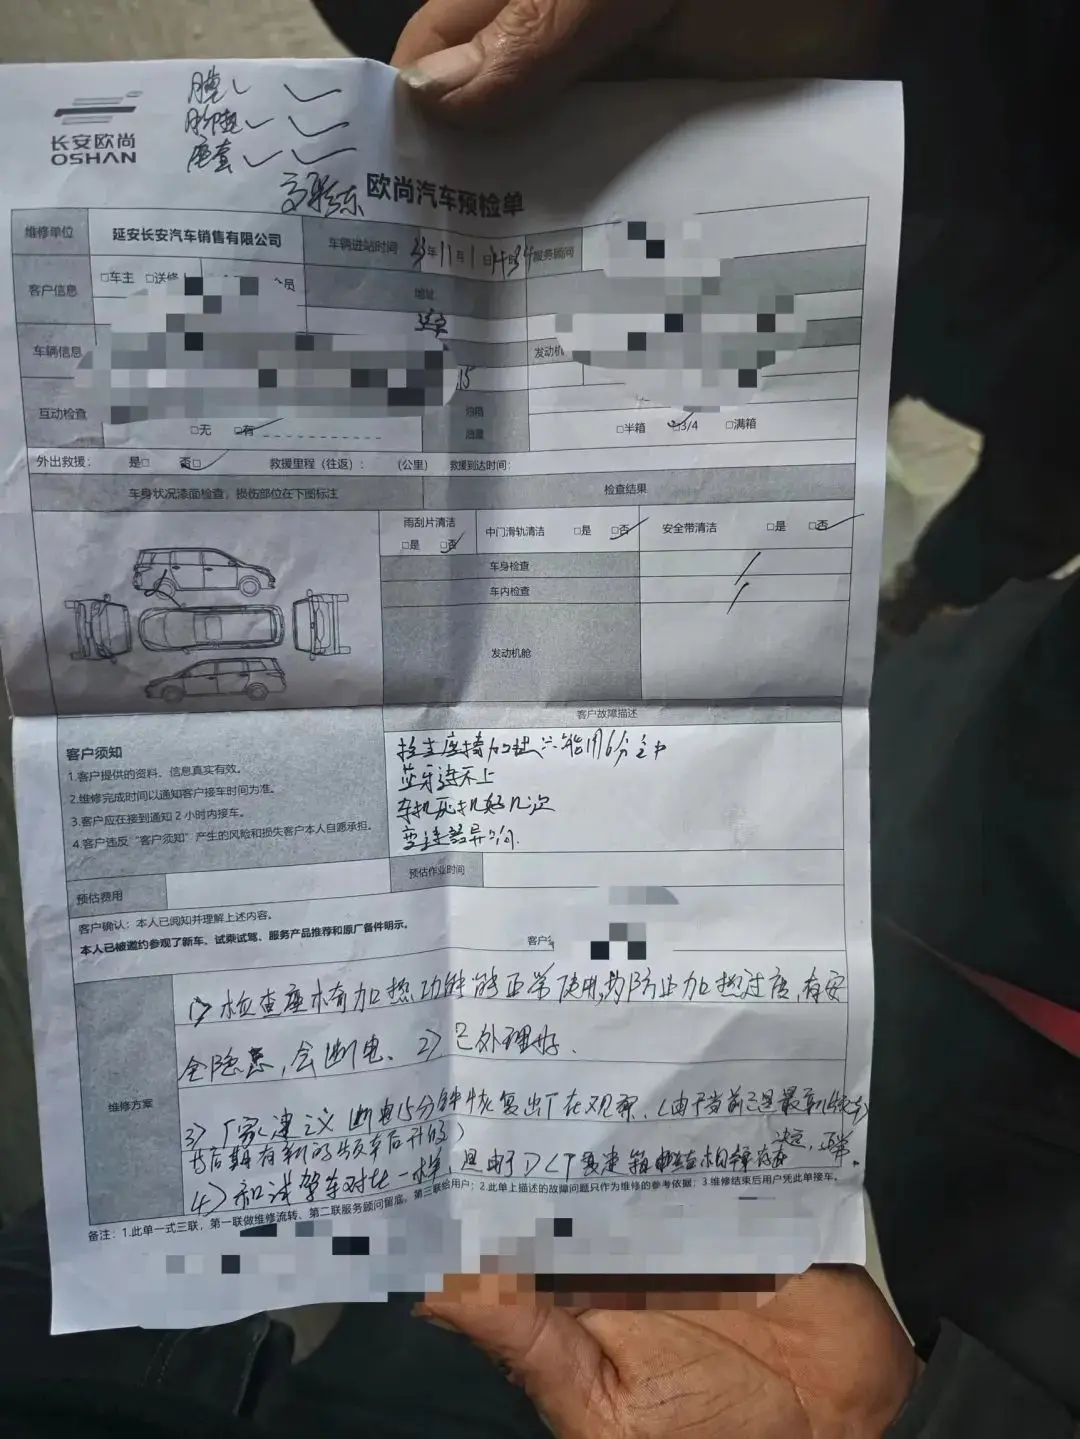 长安欧尚
OSHAN
脚垫
座套
欧尚汽车预检单
维修单位 延安长安汽车销售有限公司 车辆进站时间 23年11月1日 服务顾问
客户信息 □车主 □送修 员 地址
车辆信息 发动机
15
互动检查 □无 □有 油箱 油量 □半箱 □3/4 □满箱
外出救援: 是□ 否□ 救援里程(往返): (公里) 救援到达时间:
车身状况漆面检查,损伤部位在下图标注 检查结果
雨刮片清洁 □是 □否 中门滑轨清洁 □是 □否 安全带清洁 □是 □否
车身检查
车内检查
发动机舱
客户故障描述
客户须知
1.客户提供的资料、信息真实有效。
2.维修完成时间以通知客户接车时间为准。
3.客户应在接到通知2小时内接车。
4.客户违反“客户须知”产生的风险和损失客户本人自愿承担。
座椅加热只能用6分钟
蓝牙连不上
车机死机好几次
变速器异响
预估费用 预估作业时间
客户确认:本人已阅知并理解上述内容。
本人已被邀约参观了新车、试乘试驾、服务产品推荐和原厂备件明示。
客户
维修方案
1> 检查座椅加热功能能正常使用,为防止加热过度,有安
全隐患,会断电、2> 已处理好.
3> 厂家建议断电15分钟恢复出厂在观察.(由于当前已是最新
后期有新的版本后升级)
4> 和试驾车对比一样,是由于DCT变速箱 决定,正常.
备注:1.此单一式三联,第一联做维修流转、第二联服务顾问留底,第三联给用户;2.此单上描述的故障问题只作为维修的参考依据;3.维修结束后用户凭此单接车。